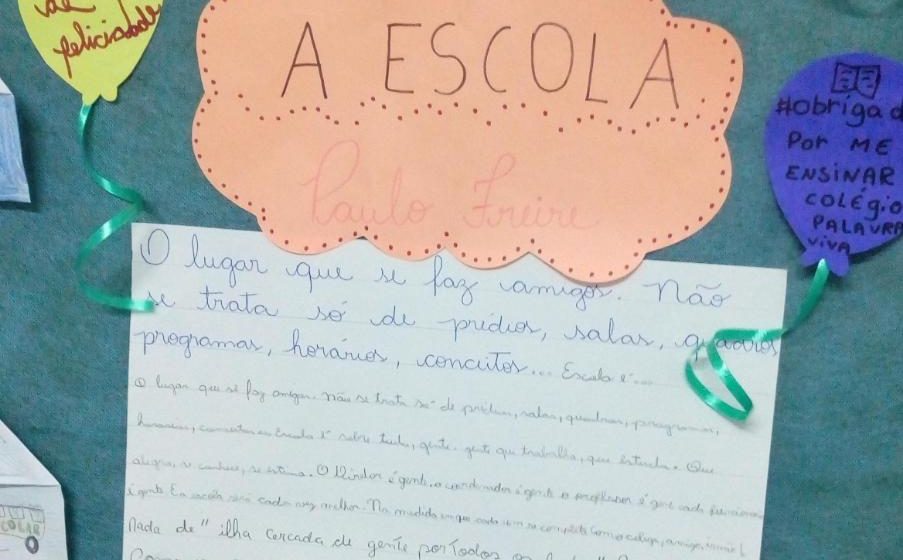 de
felicidade
A ESCOLA
Paulo Freire
#obrigad
POR ME
ENSINAR
COLÉgio
PALAVRA
VIVA
O lugar que se faz amigos. Não
se trata só de prédios, salas, quadros
programas, horários, conceitos... Escola é...
O lugar que se faz amigos. não se trata só de prédios, salas, quadros, programas,
horários, conceitos... Escola é sobre tudo, gente. gente que trabalha, que estuda. Que
alegra, se conhece, se estima. O Diretor é gente, o coordenador é gente o professor é gente cada funcionário
é gente E a escola será cada vez melhor. Na medida em que cada um se comporte como colega, amigo, irmão!
Nada de "ilha cercada de gente por todos os
COLAR